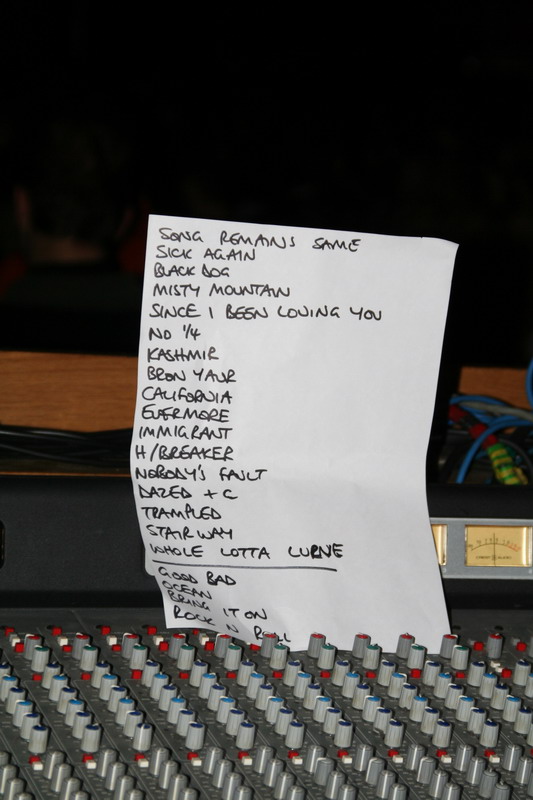 SONG REMAINS SAME
SICK AGAIN
BLACK DOG
MISTY MOUNTAIN
SINCE I BEEN LOVING YOU
NO 1/4
KASHMIR
BRON YAUR
CALIFORNIA
EVERMORE
IMMIGRANT
H/BREAKER
NOBODY'S FAULT
DAZED + C
TRAMPLED
STAIRWAY
WHOLE LOTTA LURVE
GOOD BAD
OCEAN
BRING IT ON
ROCK N ROLL